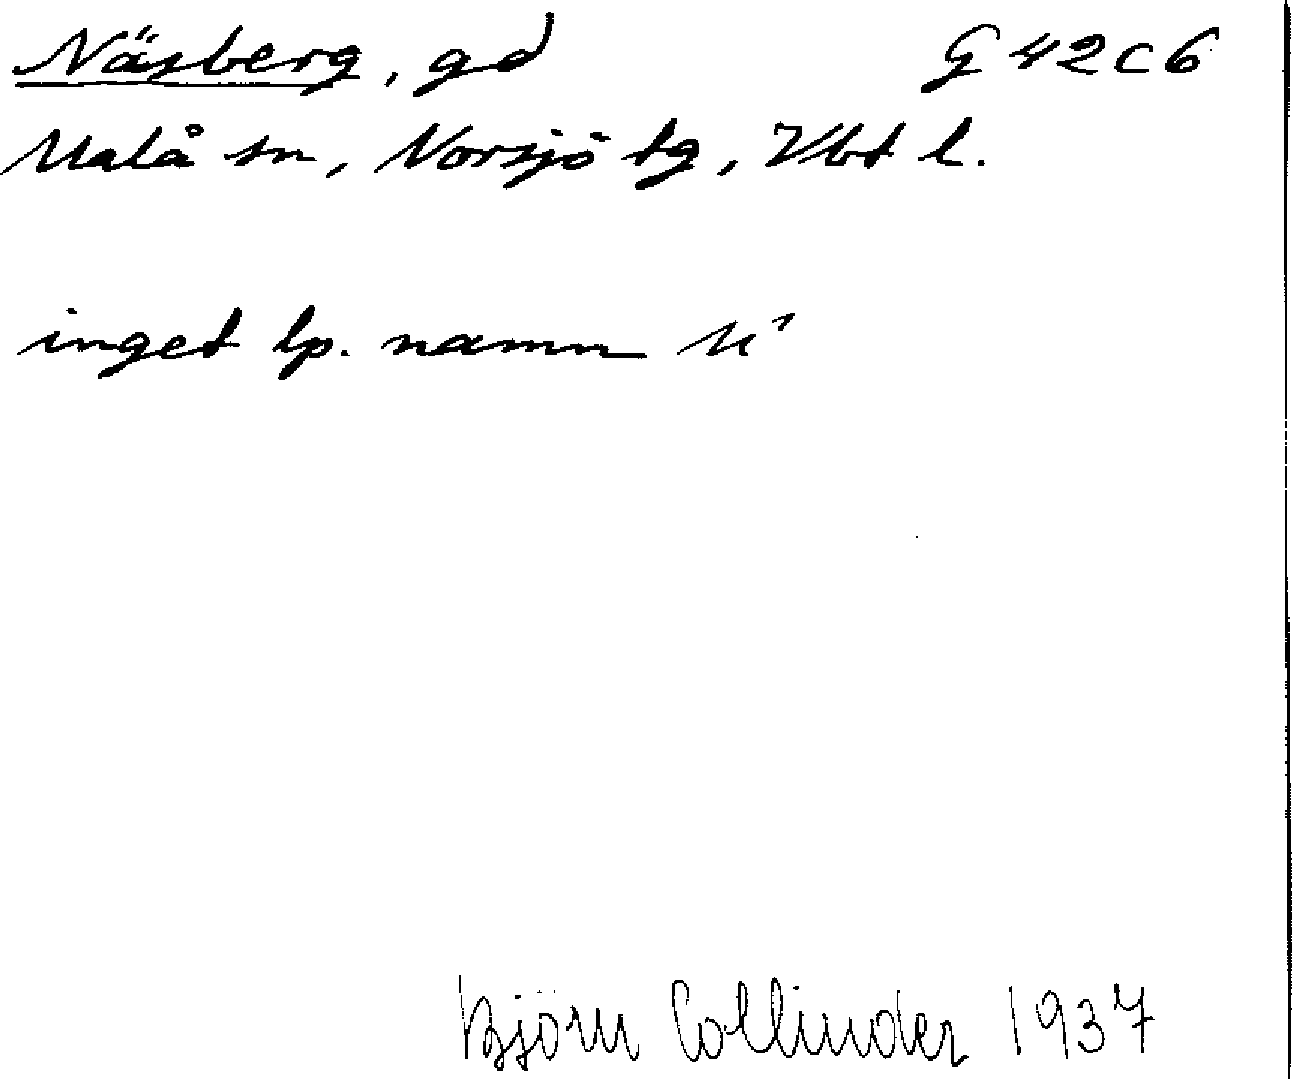 Näsberg, gd G 42 c 6
Malå sn, Norsjö tg, Vbt l.
inget lp. namn M¹
Björn Collinder 1937